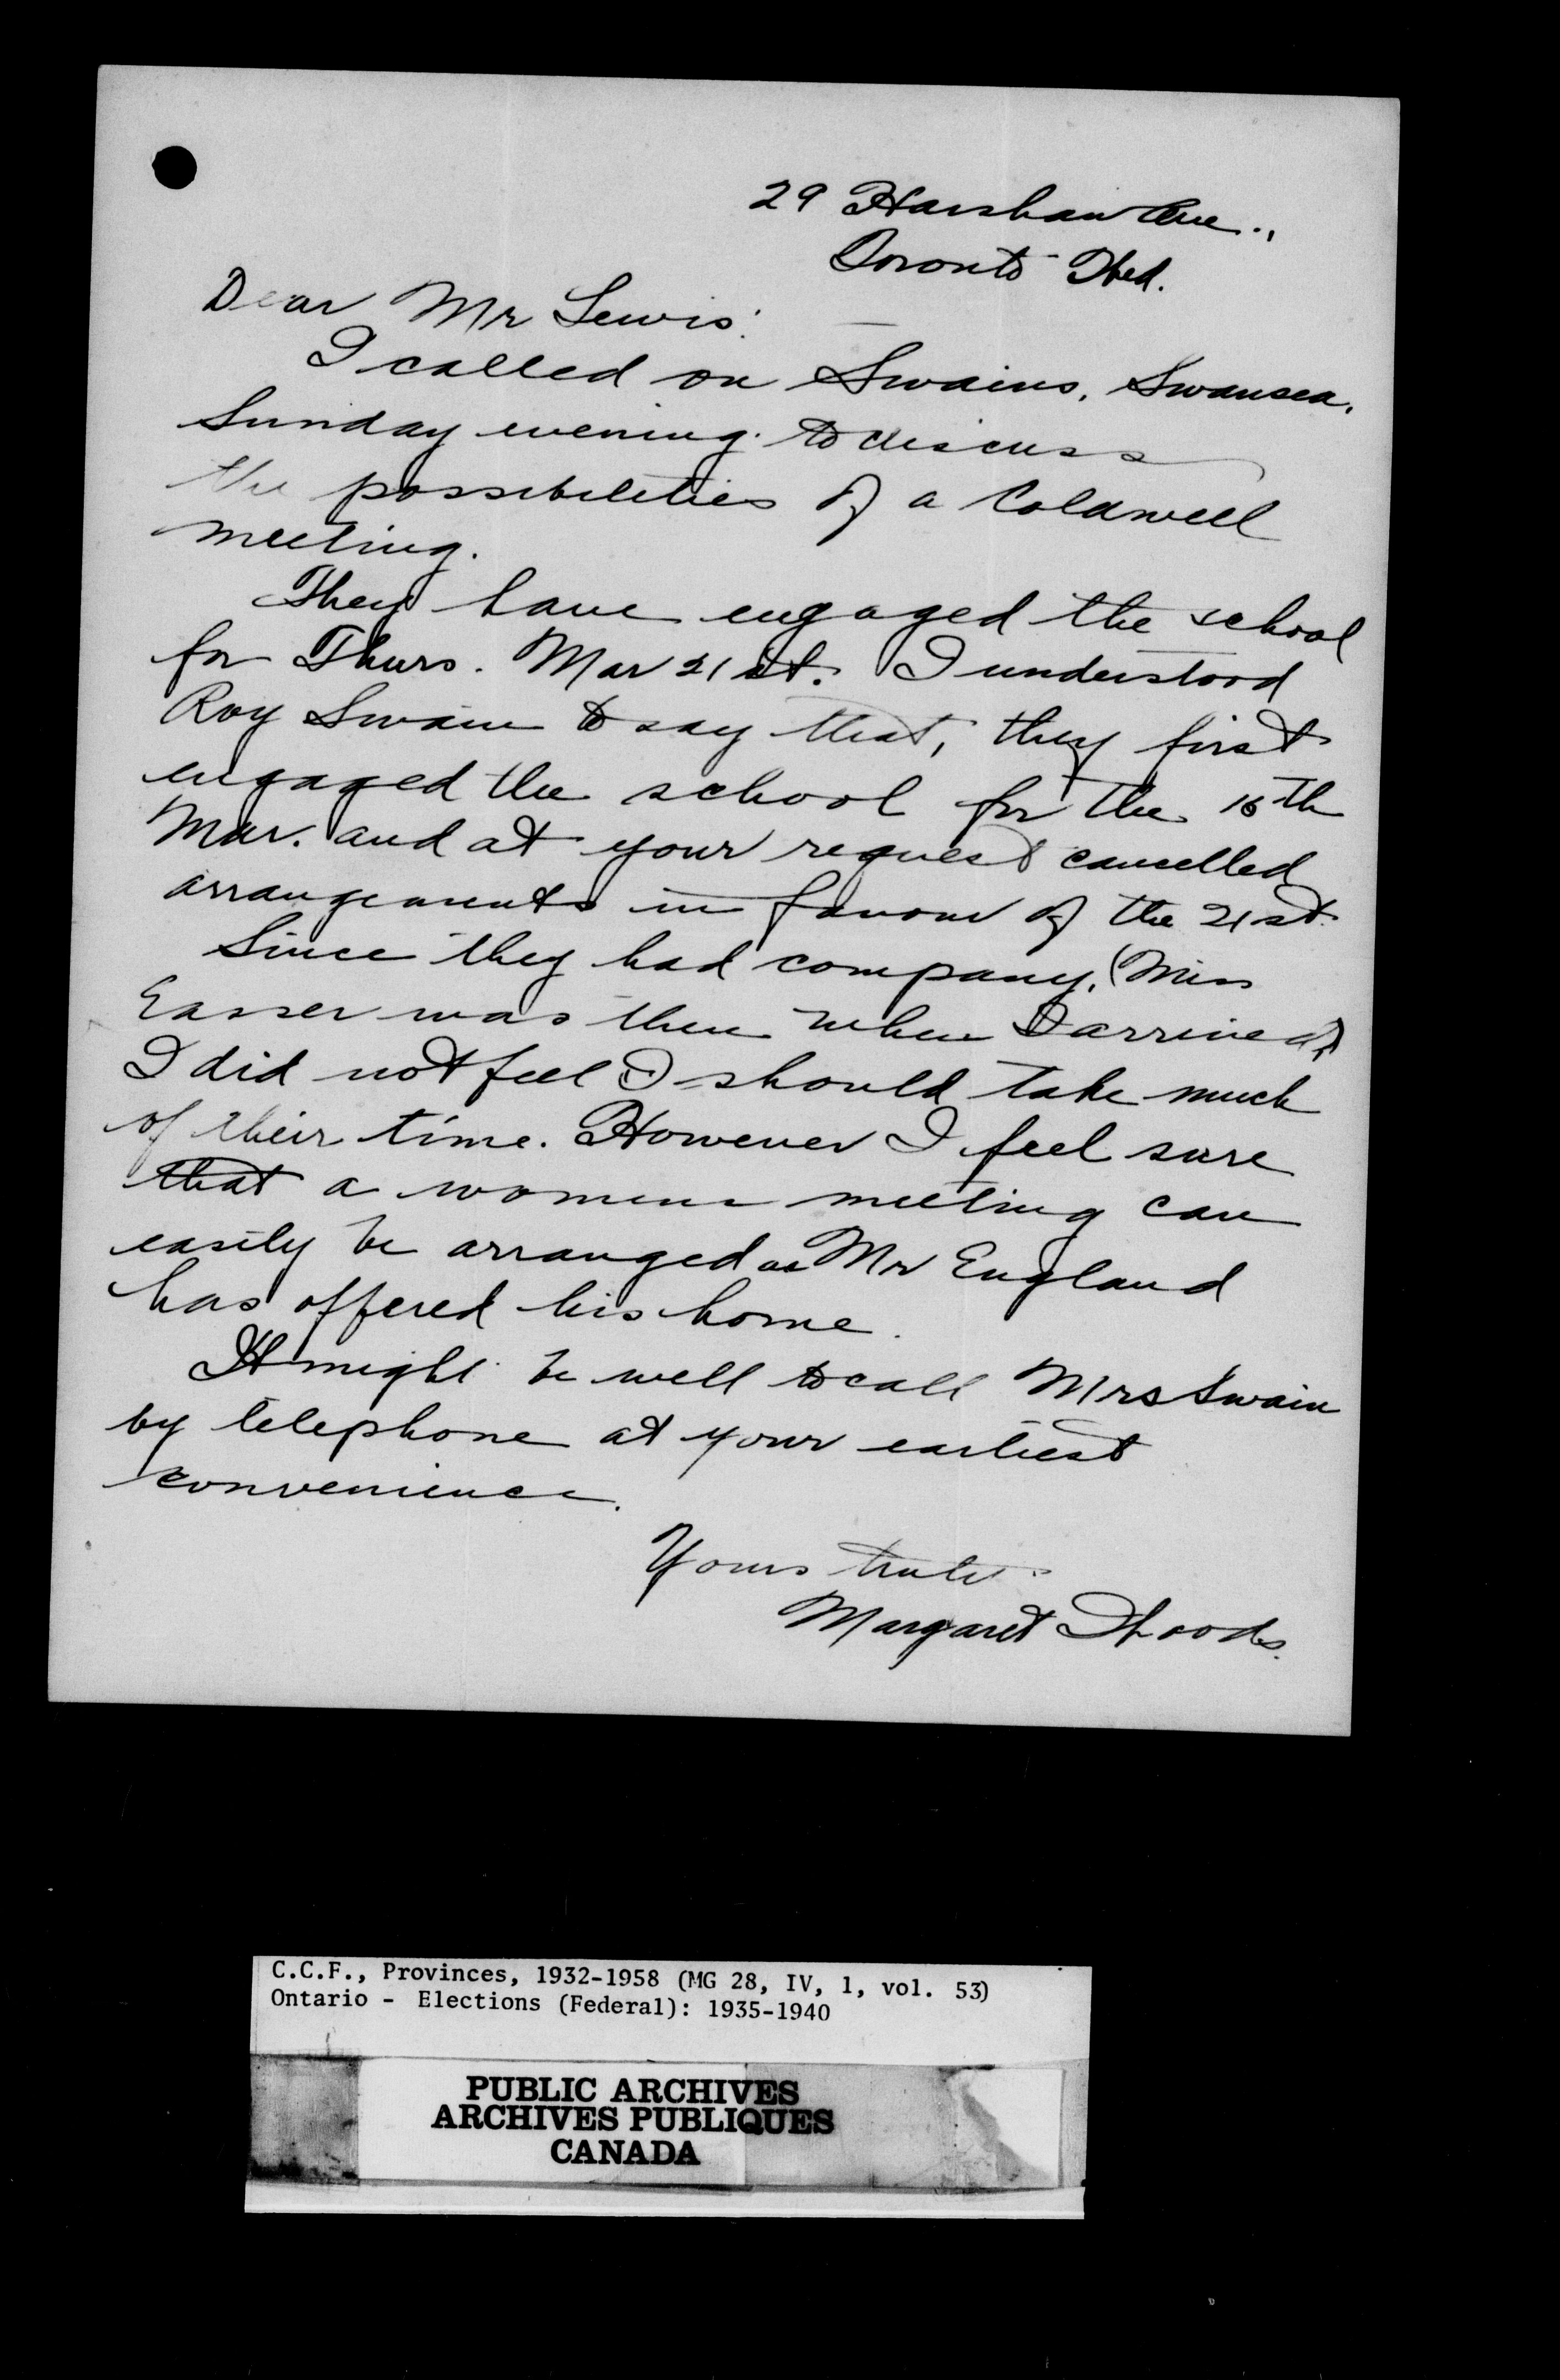 29 Harshaw Ave.,
Toronto Wed.
Dear Mr Lewis:
I called on Swains, Swansea,
Sunday evening to discuss
the possibilities of a Coldwell
meeting.
They have engaged the school
for Thurs. Mar 21st. I understood
Roy Swain to say that, they first
engaged the school for the 15th
Mar. and at your request cancelled
arrangements in favour of the 21st.
Since they had company, (Miss
Easser was there when I arrived),
I did not feel I should take much
of their time. However I feel sure
that a womens meeting can
easily be arranged as Mr England
has offered his home.
It might be well to call Mrs Swain
by telephone at your earliest
convenience.
Yours truly
Margaret Woods.
C.C.F., Provinces, 1932-1958 (MG 28, IV, 1, vol. 53)
Ontario - Elections (Federal): 1935-1940
PUBLIC ARCHIVES
ARCHIVES PUBLIQUES
CANADA